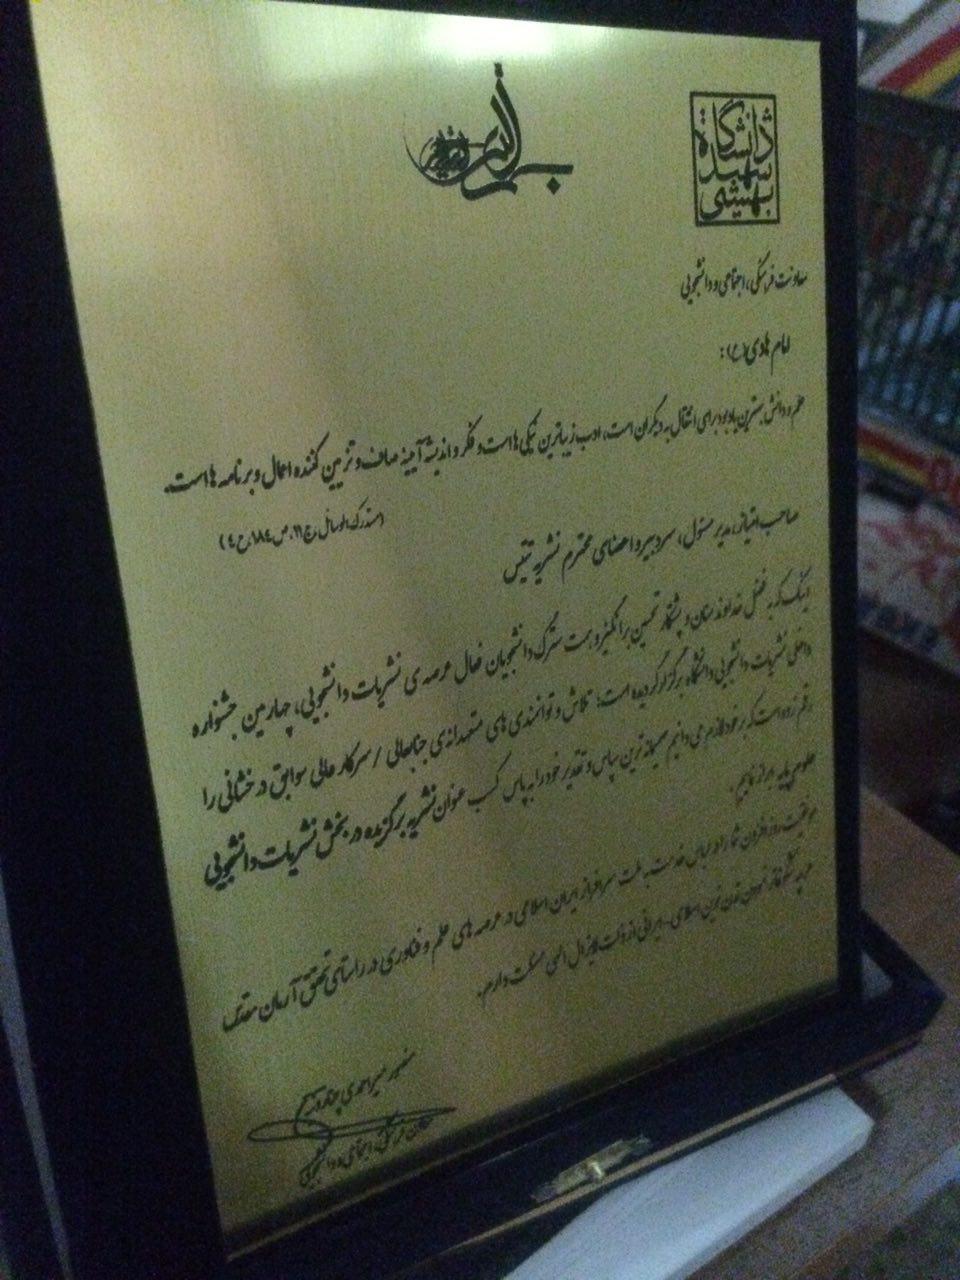 دانشگاه
شهید
بهشتی
معاونت فرهنگی، اجتماعی و دانشجویی
امام هادی(ع):
علم و دانش بهترین یادبود برای انتقال به دیگران است، ادب زیباترین نیکی ها است و فکر و اندیشه آیینه صاف و تزیین کننده اعمال و برنامه ها است.
(مستدرک الوسائل، ج۱۱، ص۱۸٤، ح٤)
صاحب امتیاز، مدیر مسئول، سردبیر و اعضای محترم نشریه تتیس
اینک که به فضل خداوند منان و پشتکار تحسین برانگیز و همت سترگ دانشجویان فعال عرصه ی نشریات دانشجویی، چهارمین جشنواره
داخلی نشریات دانشجویی دانشگاه برگزار گردیده است؛ تلاش و توانمندی های متعهدانه ی جنابعالی / سرکار عالی سوابق درخشانی را
رقم زده است که بر خود لازم می دانیم صمیمانه ترین سپاس و تقدیر خود را به پاس کسب عنوان نشریه برگزیده در بخش نشریات دانشجویی
علوم پایه ابراز نماییم.
موفقیت روزافزون شما را در لباس خدمت به ملت سرافراز ایران اسلامی در عرصه های علم و فناوری در راستای تحقق آرمان مقدس
نمودن تمدن نوین اسلامی-ایرانی از ذات لایزال الهی مسئلت دارم.
منصور میراحمدی چناروئیه
معاون فرهنگی، اجتماعی و دانشجویی